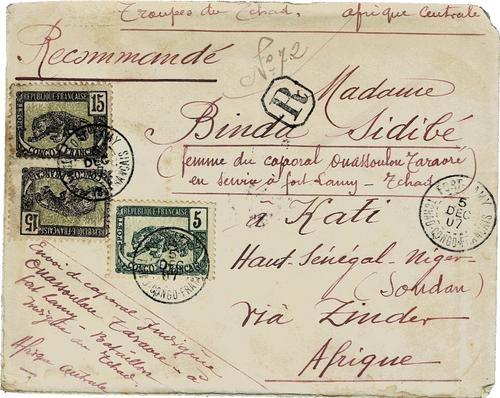 Troupes du Tchad. Afrique Centrale
Recommandé
No 72
R
Madame
Binda Sidibé
(femme du caporal Ouassoulou Taraoré
en service à fort-Lamy - Tchad)
à Kati
Haut-Sénégal-Niger
(Soudan)
via Zinder
Afrique
RÉPUBLIQUE FRANÇAISE
15
15
RÉPUBLIQUE FRANÇAISE
POSTES
5
CONGO FRANÇAIS
FORT-LAMY
5
DEC
07
CONGO-FRANÇAIS
5
DEC
07
CONGO-FRANÇAIS
DEC
Envoi du caporal indigène
Ouassoulou Taraoré - à
fort Lamy - Bataillon
du Tchad.
Afrique Centrale